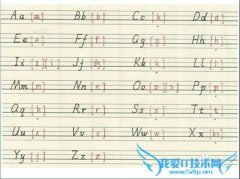 Aa [æ] Bb [b] Cc [k] Dd [d]
Ee [e] Ff [f] Gg [g] Hh [h]
Ii Jj [dʒ] Kk [k] Ll [l]
Mm [m] Nn [n] Oo Pp [p]
Qq [k] Rr [r] Ss [s] Tt [t]
Uu [ʌ] Vv [v] Ww [w] Xx [ks]
Yy [j] Zz [z]
我爱IT技术网